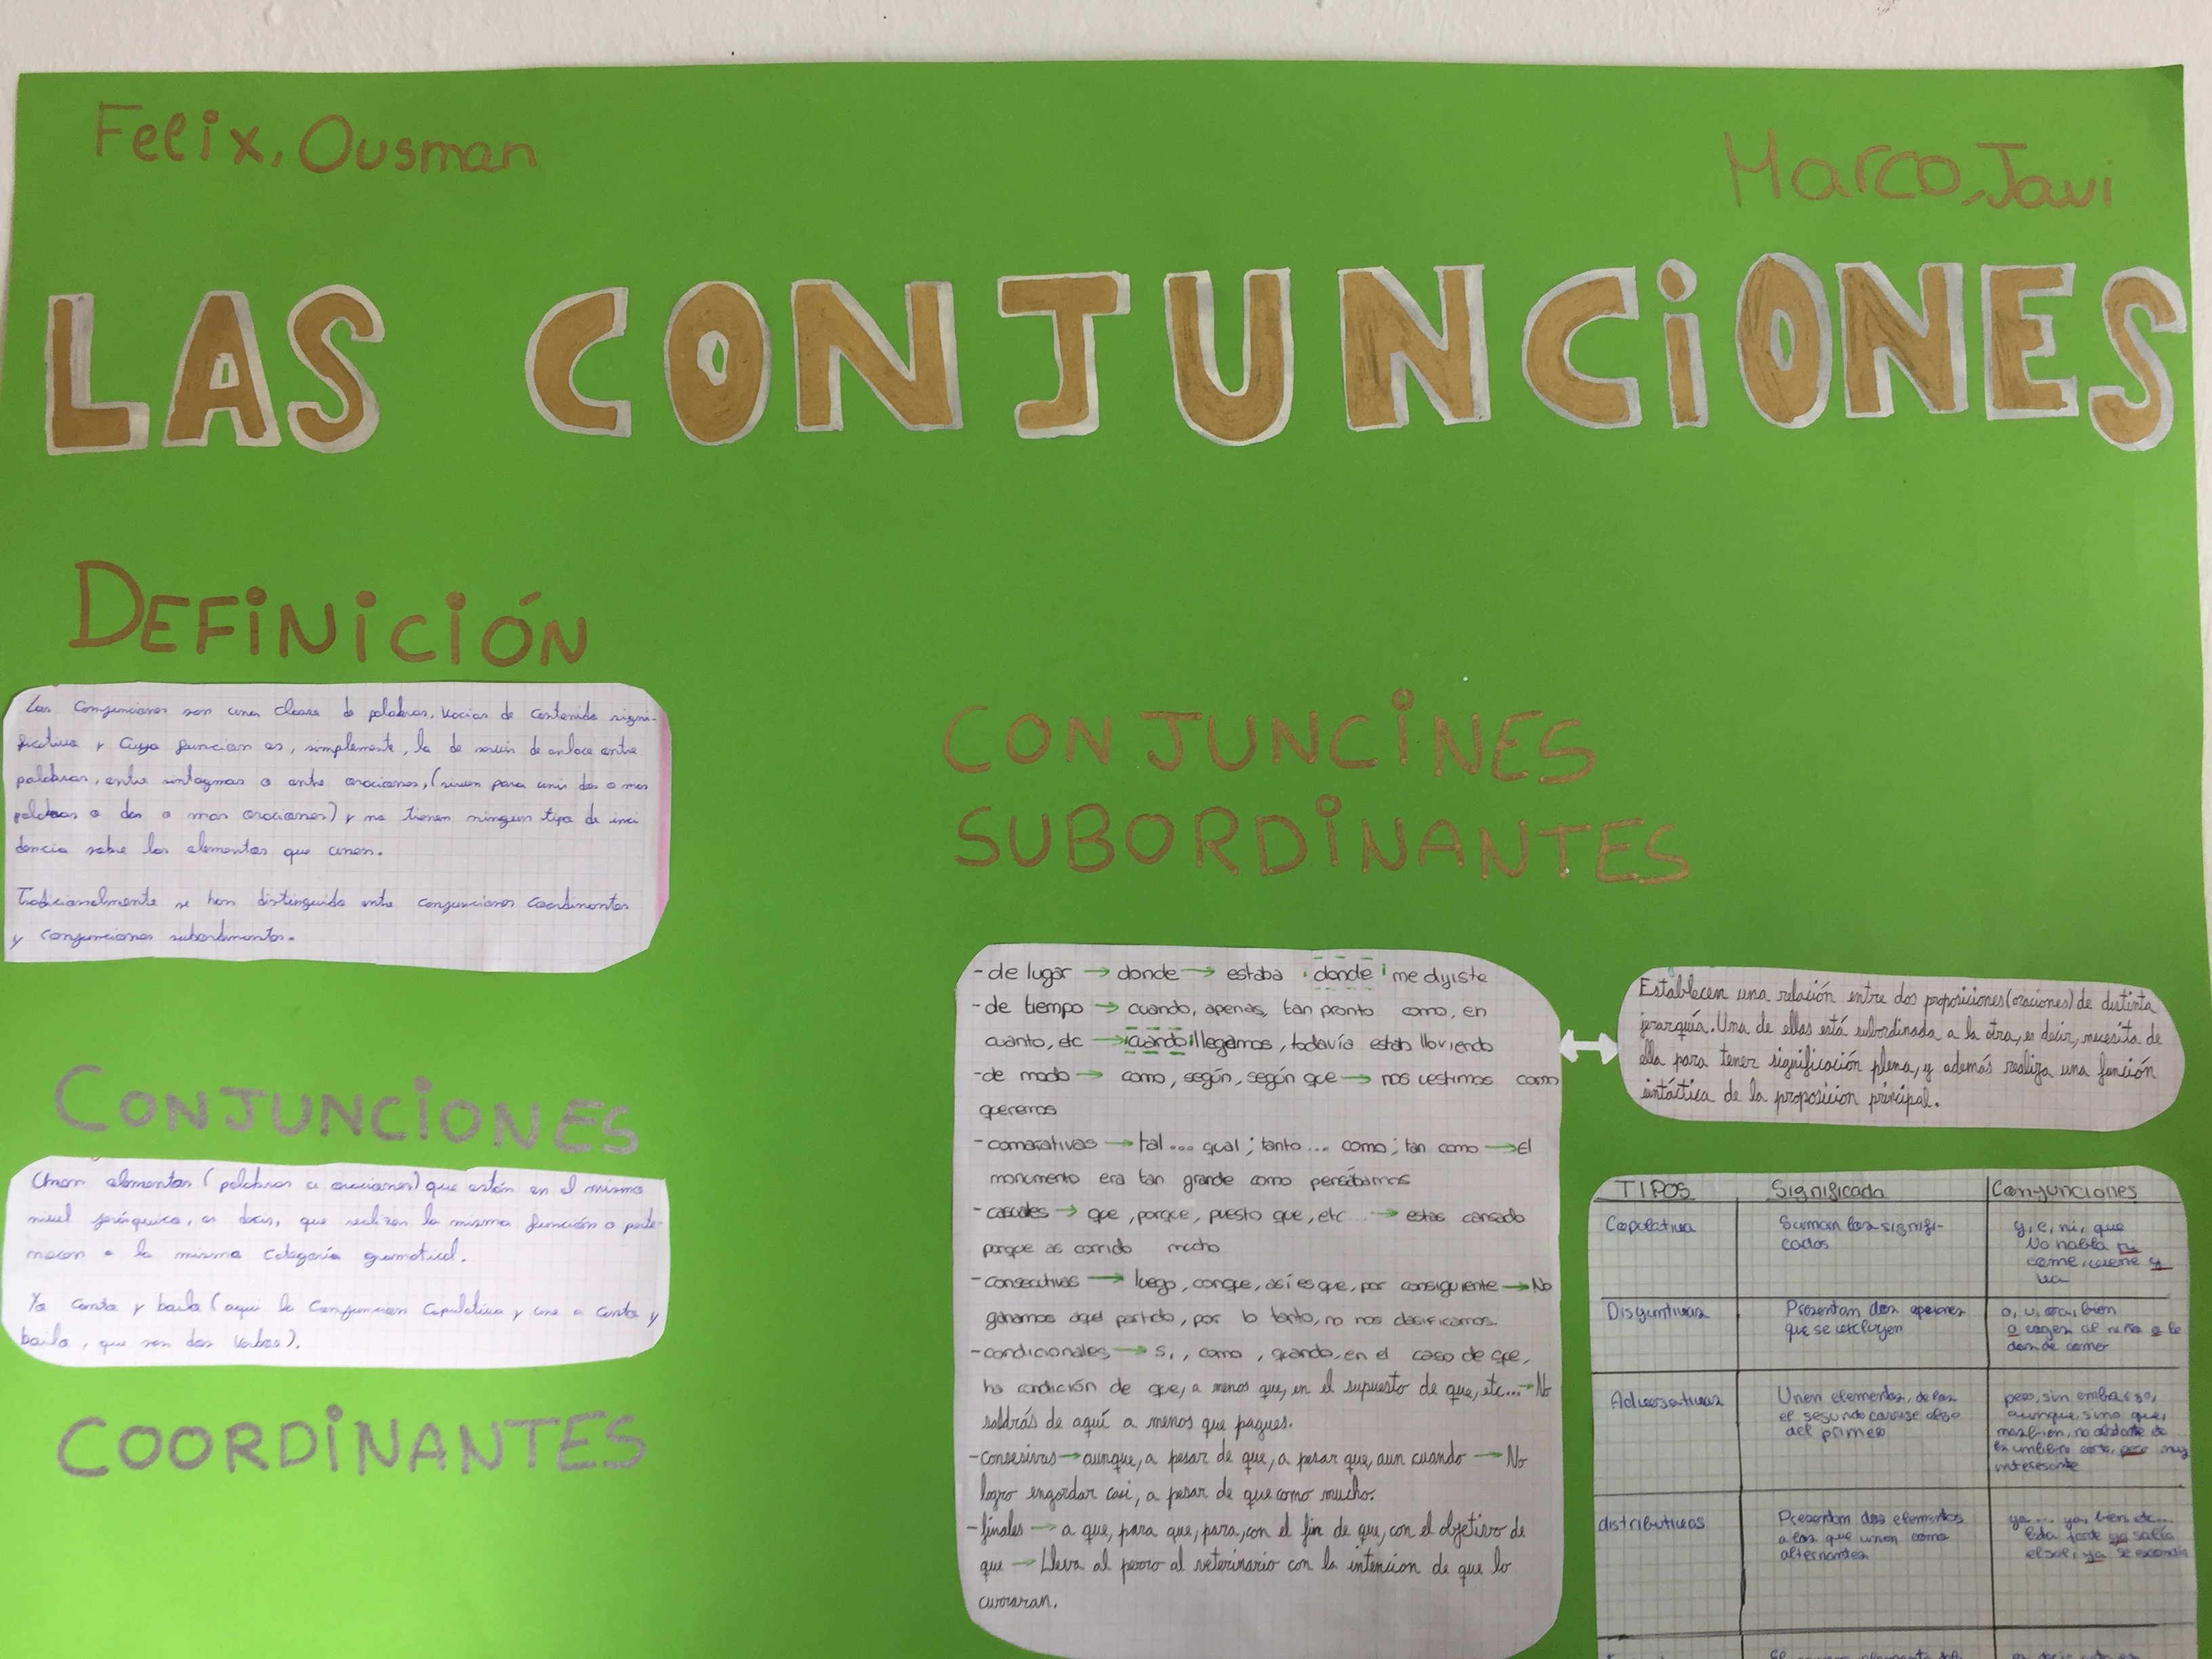 Felix, Ousman
Marco, Javi
LAS CONJUNCiONES
DEFiNiCiÓN
Las Conjunciones son una clases de palabras, vacias de contenido signi-
ficativo y cuya funcion es, simplemente, la de servir de enlace entre
palabras, entre sintagmas o entre oraciones, (sirven para unir dos o mas
palabras o dos o mas oraciones) y no tienen ningun tipo de inci
dencia sobre los elementos que unen.
Tradicionalmente se han distinguido entre conjunciones coordinantes
y conjunciones subordinantes.
CONJUNCiONES
Unen elementos (palabras u oraciones) que están en el mismo
nivel jerárquico, es decir, que realizan la misma función o perte-
necen a la misma categoría gramatical.
Yo canta y baila (aqui la Conjuncion Copulativa y une a canta y
baila, que son dos verbos).
COORDiNANTES
CONJUNCiNES
SUBORDiNANTES
- de lugar → donde → estaba donde me dijiste
- de tiempo → cuando, apenas, tan pronto como, en
cuanto, etc → cuando llegamos, todavía estab lloviendo
- de modo → como, según, según que → nos vestimos como
queremos
- comarativas → tal... qual; tanto... como; tan como → El
monumento era tan grande como pensábamos
- casuales → que, porque, puesto que, etc... → estas cansado
porque as corrido mucho
- consecutivas → luego, conque, así es que, por consiguiente → No
ganamos aquel partido, por lo tanto, no nos clasificamos.
- condicionales → si, como, quando, en el caso de que,
ha condición de que, a menos que, en el supuesto de que, etc... → No
saldrás de aquí a menos que pagues.
- consesivas → aunque, a pesar de que, a pesar que, aun cuando → No
logro engordar casi, a pesar de que como mucho.
- finales → a que, para que, para, con el fin de que, con el objetivo de
que → Lleva al perro al veterinario con la intencion de que lo
curaran.
Establecen una relación entre dos proposiciones (oraciones) de distinta
jerarquía. Una de ellas está subordinada a la otra, es decir, necesita de
ella para tener significación plena, y además realiza una función
sintáctica de la proposición principal.
TIPOS Significado Conjunciones
Copulativa Suman los signifi-
cados
y, e, ni, que
No habla ni
come, viene y
va
Disyuntivas Presentan dos opciones
que se excluyen
o, u, ora, bien
o cogen al niño o le
dan de comer
Adversativas Unen elementos, de los
el segundo corrise algo
del primero
pero, sin embargo,
aunque, sino que,
mas bien, no obstante
corto, pero muy
interesante
distributivas Presentan dos elementos
a los que unen como
alternantes
ya... ya, bien etc...
Esta tarde ya salía
el sol, ya se escondía